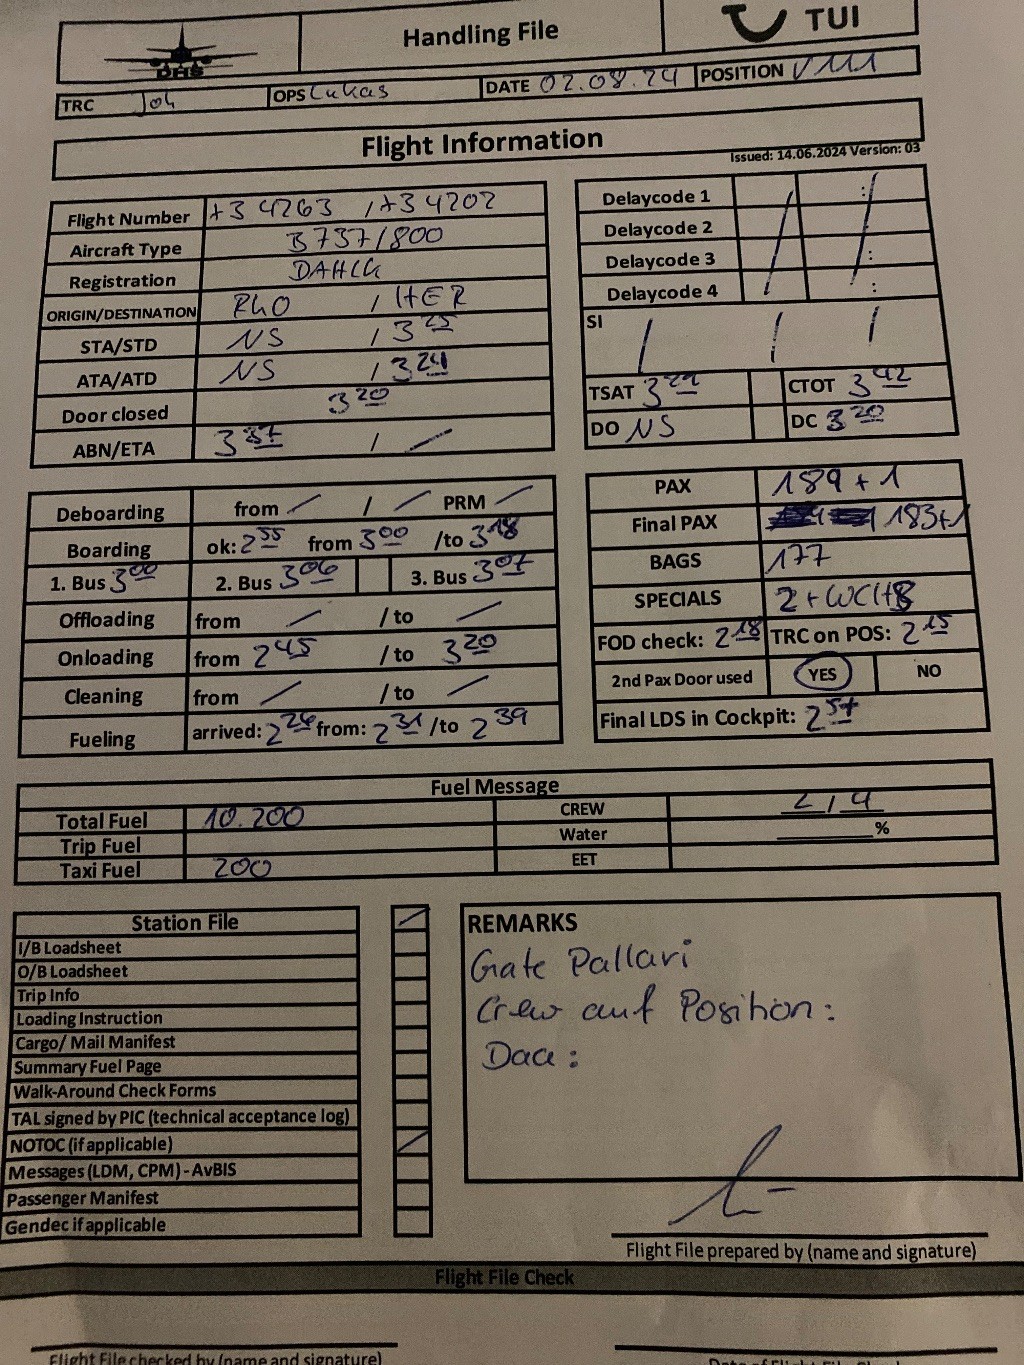 DHS
Handling File
TUI
TRC Joh OPS Lukas DATE 02.08.24 POSITION V111
Flight Information
Issued: 14.06.2024 Version: 03
Flight Number X3 4263 / X3 4202
Aircraft Type B737/800
Registration DAHLK
ORIGIN/DESTINATION RHO / HER
STA/STD NS / 3 25
ATA/ATD NS / 3 24
Door closed 3 20
ABN/ETA 3 37 /
Delaycode 1 :
Delaycode 2
Delaycode 3 :
Delaycode 4 :
SI
TSAT CTOT 3 42
DO NS DC 3 20
Deboarding from / PRM
Boarding ok: 2 55 from 3 00 /to 3 18
1. Bus 3 00 2. Bus 3 06 3. Bus 3 07
Offloading from / to
Onloading from 2 45 / to 3 20
Cleaning from / to
Fueling arrived: 2 26 from: 2 31 /to 2 39
PAX 189 + 1
Final PAX 183+1
BAGS 177
SPECIALS 2 +
FOD check: 2 18 TRC on POS: 2 15
2nd Pax Door used YES NO
Final LDS in Cockpit: 2 57
Fuel Message
Total Fuel 10.200 CREW 2 / 4
Trip Fuel Water %
Taxi Fuel 200 EET
Station File
I/B Loadsheet
O/B Loadsheet
Trip Info
Loading Instruction
Cargo/ Mail Manifest
Summary Fuel Page
Walk-Around Check Forms
TAL signed by PIC (technical acceptance log)
NOTOC (if applicable)
Messages (LDM, CPM) - AvBIS
Passenger Manifest
Gendec if applicable
REMARKS
Gate Pallavi
Crew auf Position:
Daa:
Flight File prepared by (name and signature)
Flight File Check
Flight File checked by (name and signature)